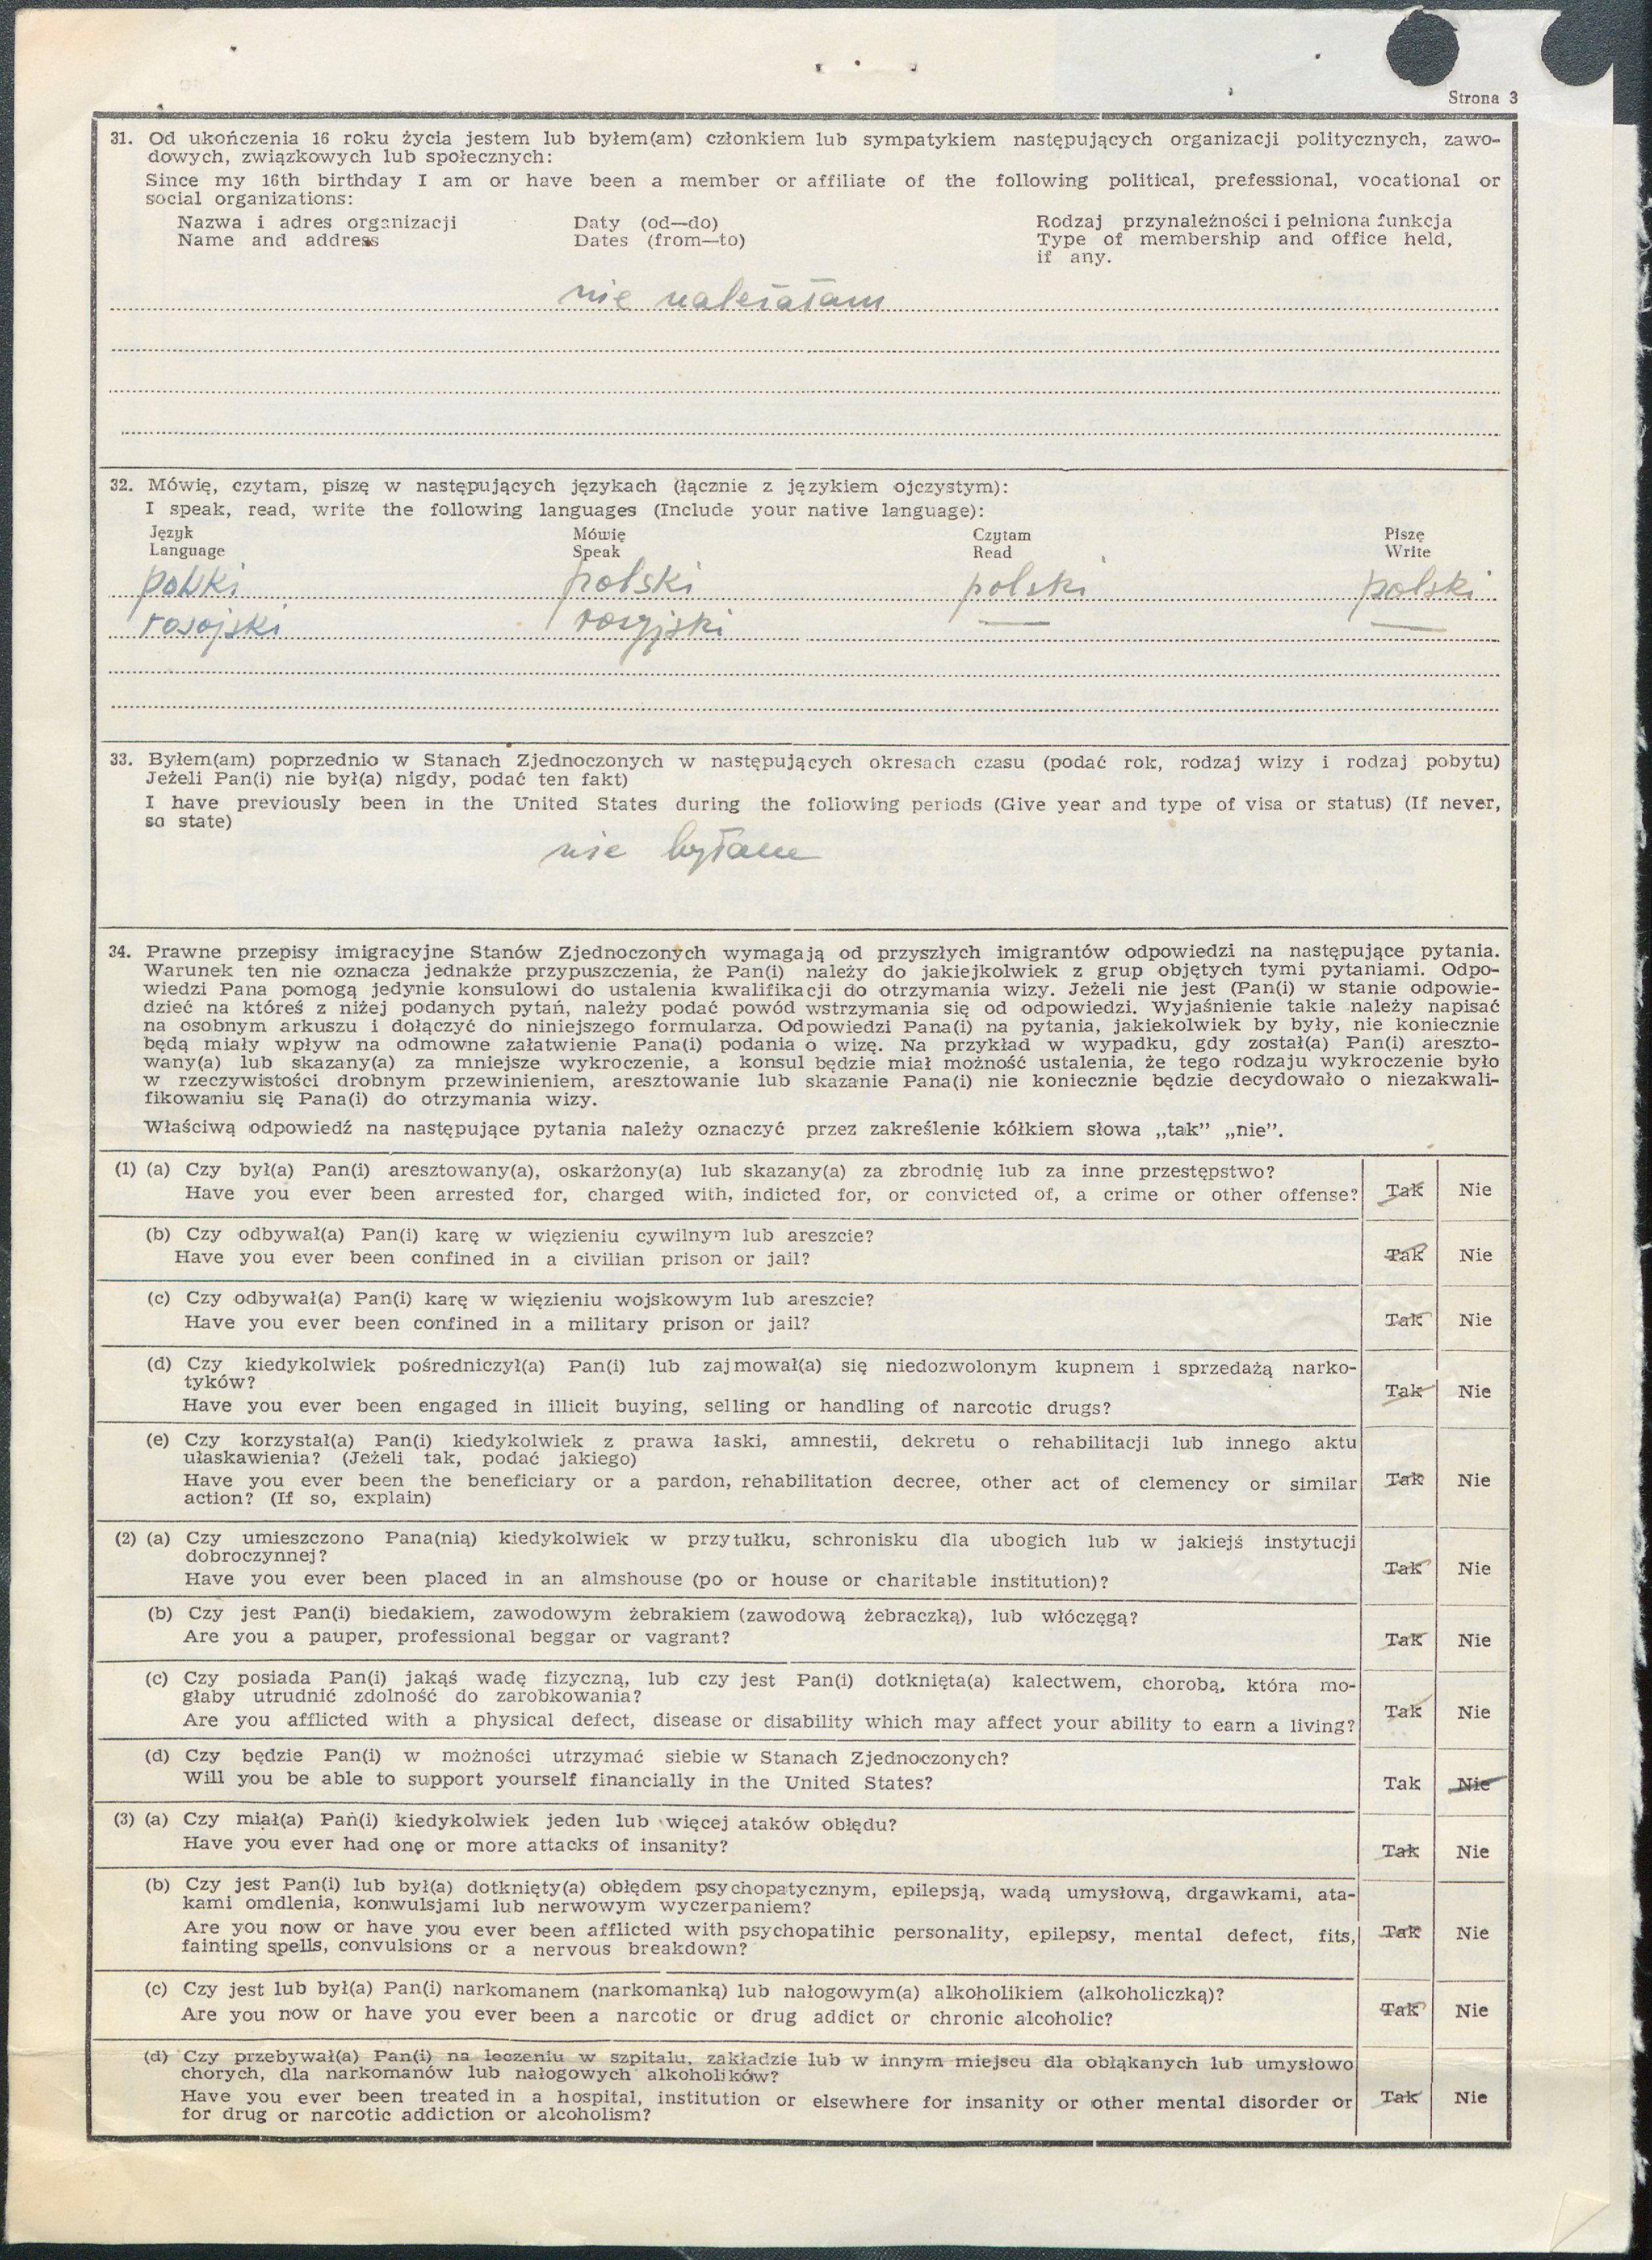 Strona 3
31. Od ukończenia 16 roku życia jestem lub byłem(am) członkiem lub sympatykiem następujących organizacji politycznych, zawo-
dowych, związkowych lub społecznych:
Since my 16th birthday I am or have been a member or affiliate of the following political, prefessional, vocational or
social organizations:
Nazwa i adres organizacji Daty (od—do) Rodzaj przynależności i pełniona funkcja
Name and address Dates (from—to) Type of membership and office held,
if any.
nie należałam
32. Mówię, czytam, piszę w następujących językach (łącznie z językiem ojczystym):
I speak, read, write the following languages (Include your native language):
Język Mówię Czytam Piszę
Language Speak Read Write
polski polski polski polski
rosyjski rosyjski — —
33. Byłem(am) poprzednio w Stanach Zjednoczonych w następujących okresach czasu (podać rok, rodzaj wizy i rodzaj pobytu)
Jeżeli Pan(i) nie był(a) nigdy, podać ten fakt)
I have previously been in the United States during the following periods (Give year and type of visa or status) (If never,
so state)
nie byłam
34. Prawne przepisy imigracyjne Stanów Zjednoczonych wymagają od przyszłych imigrantów odpowiedzi na następujące pytania.
Warunek ten nie oznacza jednakże przypuszczenia, że Pan(i) należy do jakiejkolwiek z grup objętych tymi pytaniami. Odpo-
wiedzi Pana pomogą jedynie konsulowi do ustalenia kwalifikacji do otrzymania wizy. Jeżeli nie jest (Pan(i) w stanie odpowie-
dzieć na któreś z niżej podanych pytań, należy podać powód wstrzymania się od odpowiedzi. Wyjaśnienie takie należy napisać
na osobnym arkuszu i dołączyć do niniejszego formularza. Odpowiedzi Pana(i) na pytania, jakiekolwiek by były, nie koniecznie
będą miały wpływ na odmowne załatwienie Pana(i) podania o wizę. Na przykład w wypadku, gdy został(a) Pan(i) areszto-
wany(a) lub skazany(a) za mniejsze wykroczenie, a konsul będzie miał możność ustalenia, że tego rodzaju wykroczenie było
w rzeczywistości drobnym przewinieniem, aresztowanie lub skazanie Pana(i) nie koniecznie będzie decydowało o niezakwali-
fikowaniu się Pana(i) do otrzymania wizy.
Właściwą odpowiedź na następujące pytania należy oznaczyć przez zakreślenie kółkiem słowa „tak” „nie”.
(1) (a) Czy był(a) Pan(i) aresztowany(a), oskarżony(a) lub skazany(a) za zbrodnię lub za inne przestępstwo?
Have you ever been arrested for, charged with, indicted for, or convicted of, a crime or other offense? Tak Nie
(b) Czy odbywał(a) Pan(i) karę w więzieniu cywilnym lub areszcie?
Have you ever been confined in a civilian prison or jail? Tak Nie
(c) Czy odbywał(a) Pan(i) karę w więzieniu wojskowym lub areszcie?
Have you ever been confined in a military prison or jail? Tak Nie
(d) Czy kiedykolwiek pośredniczył(a) Pan(i) lub zajmował(a) się niedozwolonym kupnem i sprzedażą narko-
tyków?
Have you ever been engaged in illicit buying, selling or handling of narcotic drugs? Tak Nie
(e) Czy korzystał(a) Pan(i) kiedykolwiek z prawa łaski, amnestii, dekretu o rehabilitacji lub innego aktu
ułaskawienia? (Jeżeli tak, podać jakiego)
Have you ever been the beneficiary or a pardon, rehabilitation decree, other act of clemency or similar Tak Nie
action? (If so, explain)
(2) (a) Czy umieszczono Pana(nią) kiedykolwiek w przytułku, schronisku dla ubogich lub w jakiejś instytucji
dobroczynnej?
Have you ever been placed in an almshouse (po or house or charitable institution)? Tak Nie
(b) Czy jest Pan(i) biedakiem, zawodowym żebrakiem (zawodową żebraczką), lub włóczęgą?
Are you a pauper, professional beggar or vagrant? Tak Nie
(c) Czy posiada Pan(i) jakąś wadę fizyczną, lub czy jest Pan(i) dotknięta(a) kalectwem, chorobą, która mo-
głaby utrudnić zdolność do zarobkowania?
Are you afflicted with a physical defect, disease or disability which may affect your ability to earn a living? Tak Nie
(d) Czy będzie Pan(i) w możności utrzymać siebie w Stanach Zjednoczonych?
Will you be able to support yourself financially in the United States? Tak Nie
(3) (a) Czy miał(a) Pan(i) kiedykolwiek jeden lub więcej ataków obłędu?
Have you ever had one or more attacks of insanity? Tak Nie
(b) Czy jest Pan(i) lub był(a) dotknięty(a) obłędem psychopatycznym, epilepsją, wadą umysłową, drgawkami, ata-
kami omdlenia, konwulsjami lub nerwowym wyczerpaniem?
Are you now or have you ever been afflicted with psychopatihic personality, epilepsy, mental defect, fits, Tak Nie
fainting spells, convulsions or a nervous breakdown?
(c) Czy jest lub był(a) Pan(i) narkomanem (narkomanką) lub nałogowym(a) alkoholikiem (alkoholiczką)?
Are you now or have you ever been a narcotic or drug addict or chronic alcoholic? Tak Nie
(d) Czy przebywał(a) Pan(i) na leczeniu w szpitalu, zakładzie lub w innym miejscu dla obłąkanych lub umysłowo
chorych, dla narkomanów lub nałogowych alkoholików?
Have you ever been treated in a hospital, institution or elsewhere for insanity or other mental disorder or Tak Nie
for drug or narcotic addiction or alcoholism?